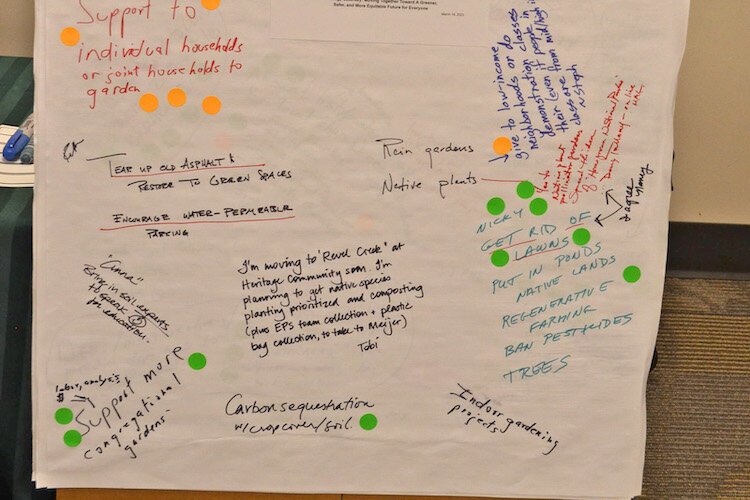 Moving Together Toward A Greener,
Safer, and More Equitable Future for Everyone
Support to
individual households
or joint households to
garden
give to low-income
neighborhoods or classes
demonstration if people in
their (even from mid/high i
class are
Rain gardens
Native plants
Spread the idea
of "Homegrown National Parks"
Doug Tallamy - on line
I agree
Nancy
TEAR UP OLD ASPHALT &
RESTORE TO GREEN SPACES
ENCOURAGE WATER-PERMEABLE
PARKING
NICKY
GET RID OF
LAWNS
PUT IN PONDS
NATIVE LANDS
REGENERATIVE
FARMING
BAN PESTICIDES
TREES
Bring in soil experts
to speak
for education.
I'm moving to "Revel Creek" at
Heritage Community soon. I'm
planning to get native species
planting prioritized and composting
(plus EPS foam collection + plastic
bag collection, to take to Meijer)
Tobi
labor, analysis
$
Support more
congregational
gardens-
Carbon sequestration
w/crop cover/soil.
Indoor gardening
projects